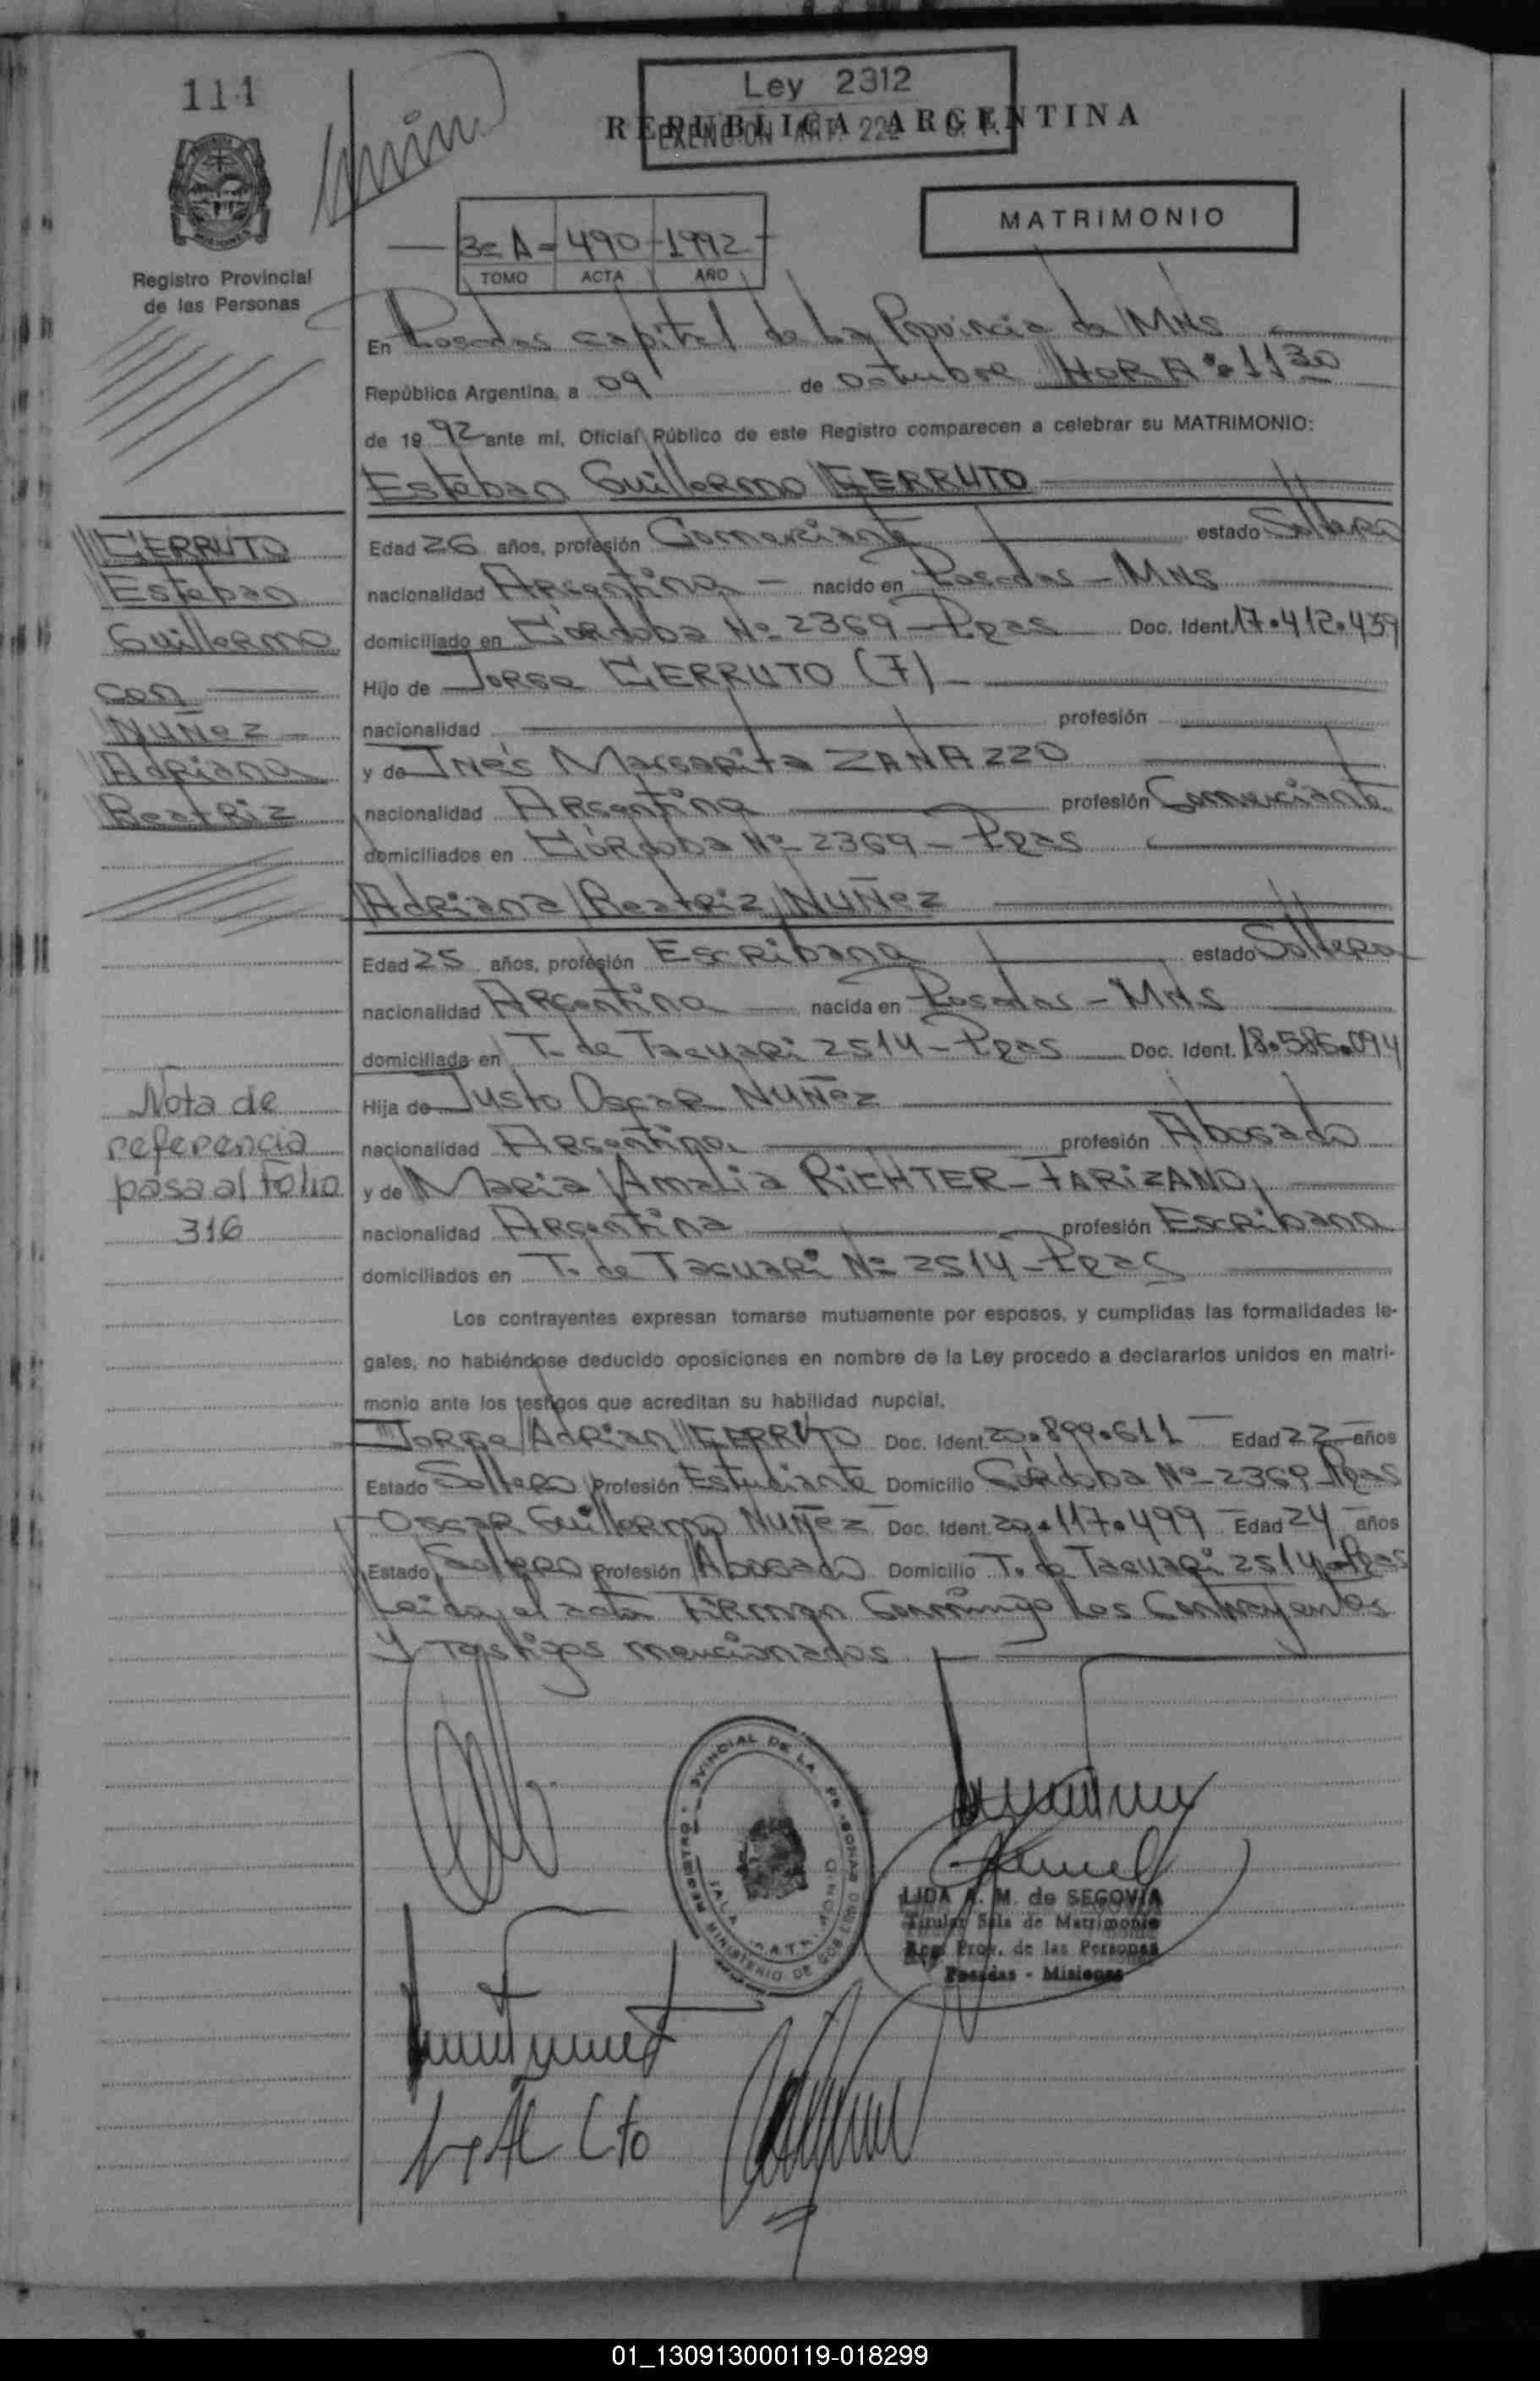 111
Ley 2312
REPUBLICA ARGENTINA
EXENCION ART. 222
MATRIMONIO
3= A - 490 - 1992
TOMO ACTA AÑO
Registro Provincial
de las Personas
En Posadas capital de La Provincia de MNS
República Argentina, a 09 de octubre HORA: 11 30
de 19 92 ante mí, Oficial Público de este Registro comparecen a celebrar su MATRIMONIO:
Esteban Guillermo CERRUTO
Edad 26 años, profesión Comerciante estado Soltero
nacionalidad Argentina - nacido en Posadas - MNS
domiciliado en Córdoba Nº 2369 - Pdas Doc. Ident. 17.412.439
Hijo de Jorge CERRUTO (F)
nacionalidad profesión
y de Inés Margarita ZANAZZO
nacionalidad Argentina profesión Comerciante
domiciliados en Córdoba Nº 2369 - Pdas
Adriana Beatriz NUÑez
Edad 25 años, profesión Escribana estado Soltera
nacionalidad Argentina nacida en Posadas - MNS
domiciliada en T. de Tacuari 2514 - Pdas Doc. Ident. 18.585.094
Hija de Justo Oscar NUÑez
nacionalidad Argentina profesión Abogado
y de Maria Amalia RICHTER - FARIZANO
nacionalidad Argentina profesión Escribana
domiciliados en T. de Tacuari Nº 2514 - Pdas
CERRUTO
Esteban
Guillermo
con
NUÑez
Adriana
Beatriz
Nota de
referencia
pasa al Folio
316
Los contrayentes expresan tomarse mutuamente por esposos, y cumplidas las formalidades le-
gales, no habiéndose deducido oposiciones en nombre de la Ley procedo a declararlos unidos en matri-
monio ante los testigos que acreditan su habilidad nupcial.
Jorge Adrian CERRUTO Doc. Ident. 20.899.611 Edad 22 años
Estado Soltero Profesión Estudiante Domicilio Córdoba Nº 2369 Pdas
Oscar Guillermo NUÑez Doc. Ident. 20.117.499 Edad 24 años
Estado Soltero Profesión Abogado Domicilio T. de Tacuari 2514 - Pdas
Leida el acta Firman Conmigo Los Contrayentes
y Testigos mencionados
LIDA A. M. de SEGOVIA
Titular Sala de Matrimonio
Reg. Prov. de las Personas
Posadas - Misiones
01_130913000119-018299